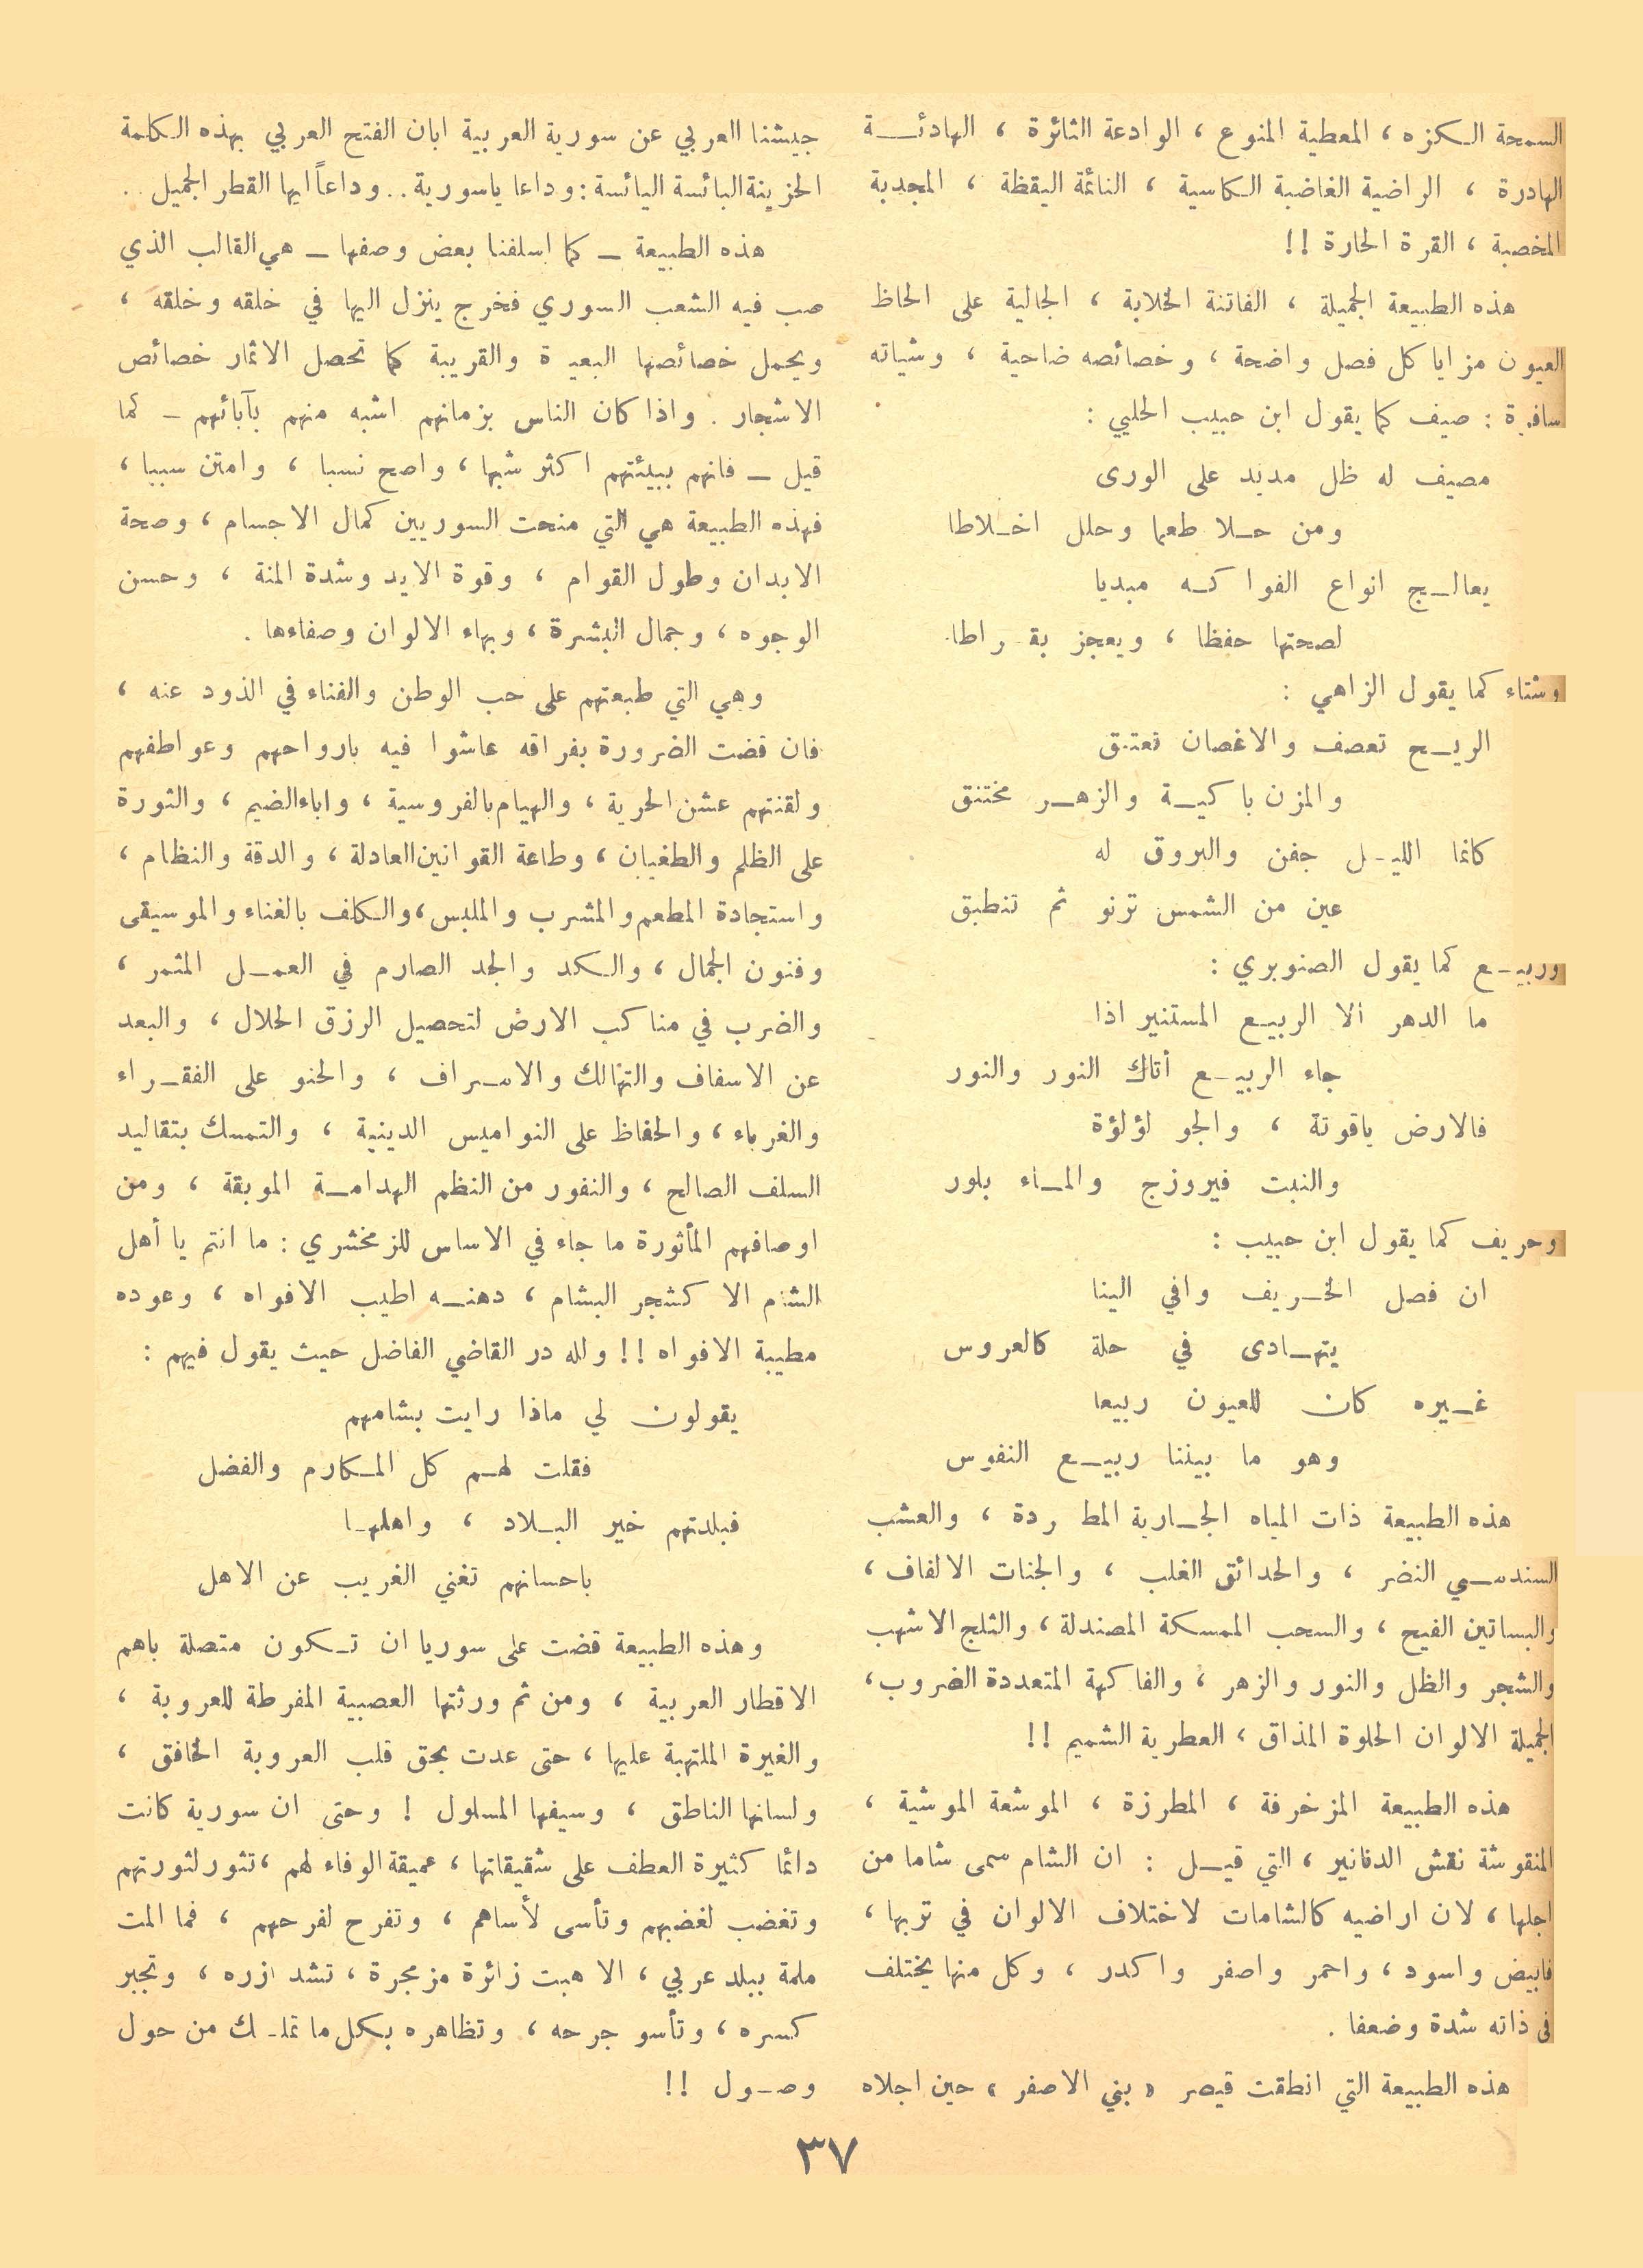 السمحة الكزه ، المعطية المنوع ، الوادعة الثائرة ، الهادئة
الهادرة ، الراضية الغاضبة الكاسية ، النائمة اليقظة ، المجدبة
المخصبة ، القرة الحارة !!
هذه الطبيعة الجميلة ، الفاتنة الخلابة ، الجالية على الحاظ
العيون مزايا كل فصل واضحة ، وخصائصه ضاحية ، وشياته
سافرة : صيف كما يقول ابن حبيب الحلبي :
مصيف له ظل مديد على الورى
ومن حلا طعما وحلل اخلاطا
يعالج انواع الفواكه مبديا
لصحتها حفظا ، ويعجز بقراطا
وشتاء كما يقول الزاهي :
الريح تعصف والاغصان تعتنق
والمزن باكية والزهر مختنق
كانما الليل جفن والبروق له
عين من الشمس ترنو ثم تنطبق
وربيع كما يقول الصنوبري :
ما الدهر الا الربيع المستنير اذا
جاء الربيع أتاك النور والنور
فالارض ياقوتة ، والجو لؤلؤة
والنبت فيروزج والماء بلور
وخريف كما يقول ابن حبيب :
ان فصل الخريف وافي الينا
يتهادى في حلة كالعروس
غيره كان للعيون ربيعا
وهو ما بيننا ربيع النفوس
هذه الطبيعة ذات المياه الجارية المطردة ، والعشب
السندسي النضر ، والحدائق الغلب ، والجنات الالفاف ،
والبساتين الفيح ، والسحب الممسكة المصندلة ، والثلج الاشهب
والشجر والظل والنور والزهر ، والفاكهة المتعددة الضروب ،
الجميلة الالوان الحلوة المذاق ، العطرية الشميم !!
هذه الطبيعة المزخرفة ، المطرزة ، الموشعة الموشية ،
المنقوشة نقش الدنانير ، التي قيل : ان الشام سمى شاما من
اجلها ، لان اراضيه كالشامات لاختلاف الالوان في تربها ،
فابيض واسود ، واحمر واصفر واكدر ، وكل منها يختلف
في ذاته شدة وضعفا .
هذه الطبيعة التي انطقت قيصر « بني الاصفر » حين اجلاه
جيشنا العربي عن سورية العربية ابان الفتح العربي بهذه الكلمة
الحزينة البائسة اليائسة : وداعا ياسورية .. وداعاً ايها القطر الجميل ..
هذه الطبيعة – كما اسلفنا بعض وصفها – هي القالب الذي
صب فيه الشعب السوري فخرج ينزل اليها في خلقه وخلقه ،
ويحمل خصائصها البعيدة والقريبة كما تحصل الاثمار خصائص
الاشجار . واذا كان الناس بزمانهم اشبه منهم بآبائهم – كما
قيل – فانهم ببيئتهم اكثر شبها ، واصح نسبا ، وامتن سببا ،
فهذه الطبيعة هي التي منحت السوريين كمال الاجسام ، وصحة
الابدان وطول القوام ، وقوة الايد وشدة المنة ، وحسن
الوجوه ، وجمال البشرة ، وبهاء الالوان وصفاءها .
وهي التي طبعتهم على حب الوطن والفناء في الذود عنه ،
فان قضت الضرورة بفراقه عاشوا فيه بارواحهم وعواطفهم
ولقنتهم عشق الحرية ، والهيام بالفروسية ، واباء الضيم ، والثورة
على الظلم والطغيان ، وطاعة القوانين العادلة ، والدقة والنظام ،
واستجادة المطعم والمشرب والملبس ، والكلف بالغناء والموسيقى
وفنون الجمال ، والكد والجد الصارم في العمل المثمر ،
والضرب في مناكب الارض لتحصيل الرزق الحلال ، والبعد
عن الاسفاف والتهالك والاسراف ، والحنو على الفقراء
والغرباء ، والحفاظ على النواميس الدينية ، والتمسك بتقاليد
السلف الصالح ، والنفور من النظم الهدامة الموبقة ، ومن
اوصافهم المأثورة ما جاء في الاساس للزمخشري : ما انتم يا أهل
الشام الا كشجر البشام ، دهنه اطيب الافواه ، وعوده
مطيبة الافواه !! ولله در القاضي الفاضل حيث يقول فيهم :
يقولون لي ماذا رايت بشامهم
فقلت لهم كل المكارم والفضل
فبلدتهم خير البلاد ، واهلها
باحسانهم تغني الغريب عن الاهل
وهذه الطبيعة قضت على سوريا ان تكون متصلة باهم
الاقطار العربية ، ومن ثم ورثتها العصبية المفرطة للعروبة ،
والغيرة الملتهبة عليها ، حتى عدت بحق قلب العروبة الخافق ،
ولسانها الناطق ، وسيفها المسلول ! وحتى ان سورية كانت
دائما كثيرة العطف على شقيقاتها ، عميقة الوفاء لهم ، تثور لثورتهم
وتغضب لغضبهم وتأسى لأساهم ، وتفرح لفرحهم ، فما المت
ملمة ببلد عربي ، الا هبت زائرة مزمجرة ، تشد ازره ، وتجبر
كسره ، وتأسو جرحه ، وتظاهره بكل ما تملك من حول
وصول !!
٣٧